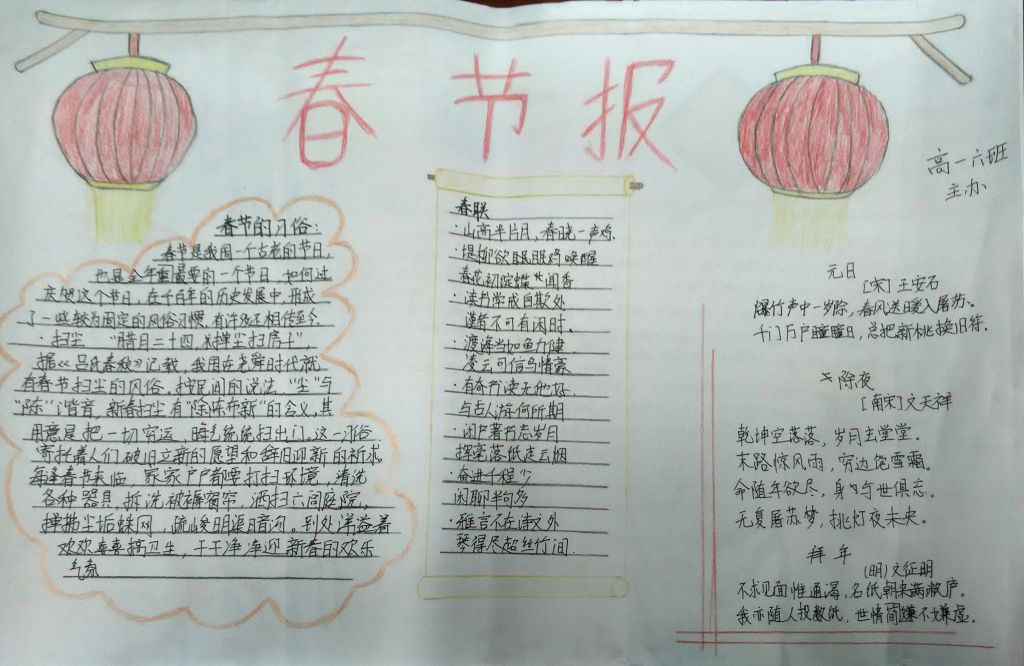 春节报
高一六班
主办
春节的习俗:
春节是我国一个古老的节日,
也是全年重最要的一个节日,如何过
庆贺这个节日,在千百年的历史发展中,形成
了一些较为固定的风俗习惯,有许多还相传至今.
·扫尘 “腊月二十四,掸尘扫房子”,
据《吕氏春秋》记载,我国在尧舜时代就
有春节扫尘的风俗,按民间的说法“尘”与
“陈”谐音,新春扫尘有“除陈布新”的含义,其
用意是把一切穷运,晦气统统扫出门.这一习俗
寄托着人们破旧立新的愿望和辞旧迎新的祈求
每逢春节来临,家家户户都要打扫环境,清洗
各种器具,拆洗被褥窗帘,洒扫六闾庭院,
掸拂尘垢蛛网,疏浚明渠暗沟.到处洋溢着
欢欢喜喜搞卫生,干干净净迎新春的欢乐
气氛
春联
·山高半片月,春晓一声鸡.
·堤柳欲眠鸡唤醒
春花初绽蝶闻香
·读书常成自欺处
谨者不可有闲时.
·渡海当如鱼力健.
凌云可信鸟情豪
·有奇书读无他好.
与古人游何所期
·闭户著书忘岁月
挥毫落纸走云烟
·奋进千程少
闲聊半句多
·雅言不在诗文外
琴得尽超丝竹间.
元日
[宋]王安石
爆竹声中一岁除,春风送暖入屠苏。
千门万户瞳瞳日,总把新桃换旧符。
除夜
[南宋]文天祥
乾坤空落落,岁月去堂堂。
末路惊风雨,穷边饱雪霜。
命随年欲尽,身与世俱忘。
无复屠苏梦,挑灯夜未央。
拜年
(明)文征明
不求见面惟通谒,名纸朝来满敝庐。
我亦随人投数纸,世情嫌简不嫌虚。